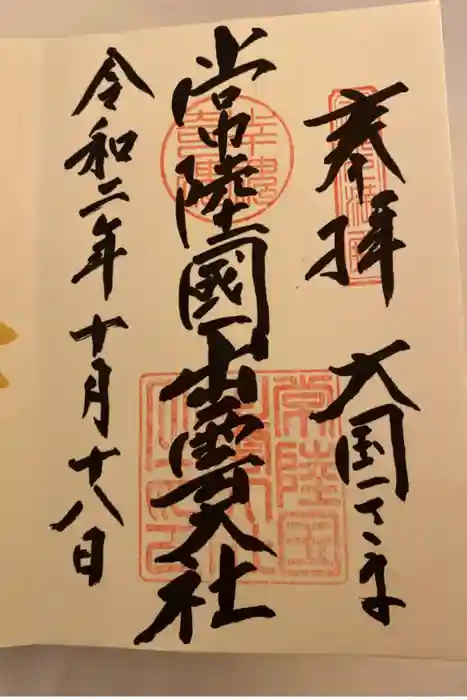 奉拝
大国さま
常陸國出雲大社
令和二年十月十八日
常陸国出雲大社